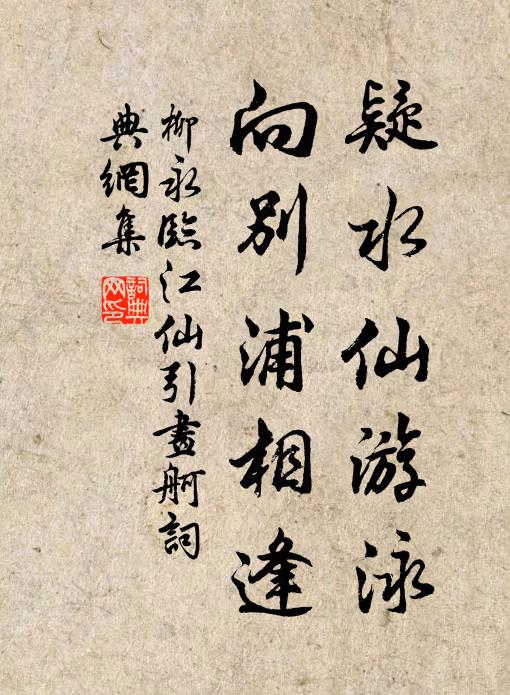 疑水仙游泳
向別浦相逢
柳永臨江仙引畫舸詞
典網集
詞典網印